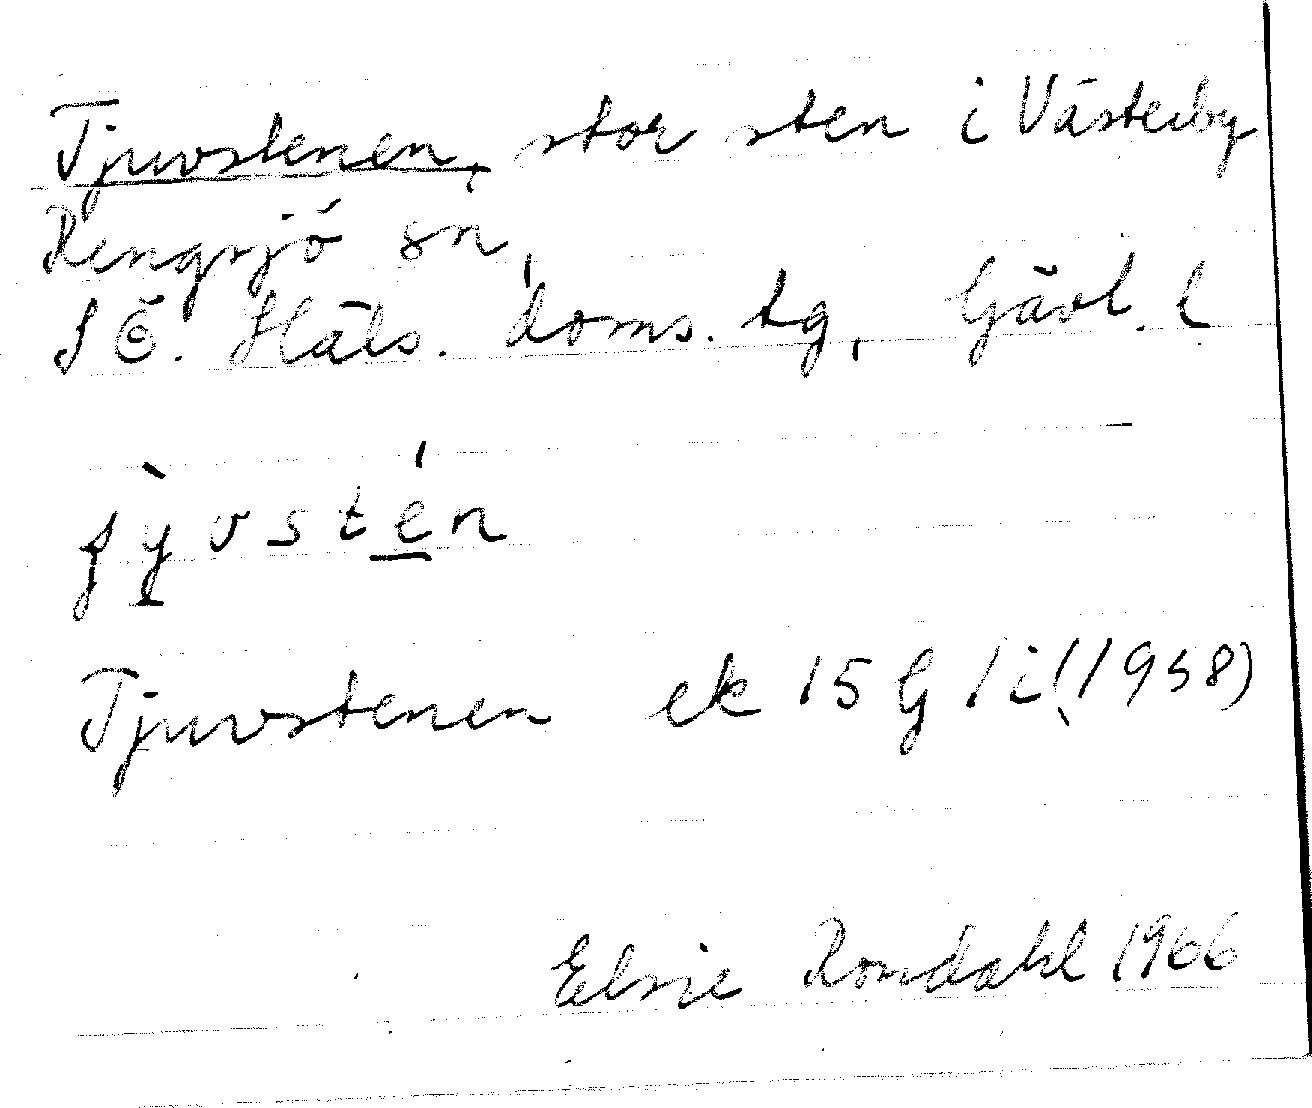 Tjuvstenen, stor sten i Västerby
Rengsjö sn,
S Ö. Häls. doms. tg, Gävl. l
Tjuvstenen ek 15 G 1 i (1958)
Elsie Rondahl 1966